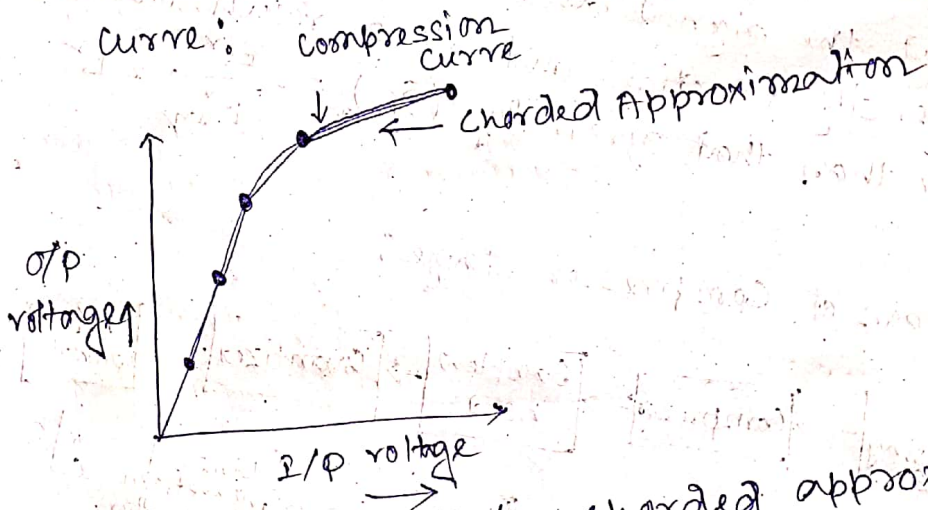 Curve: Compression
Curve
Chorded Approximation
O/P
voltage
I/P voltage
chorded